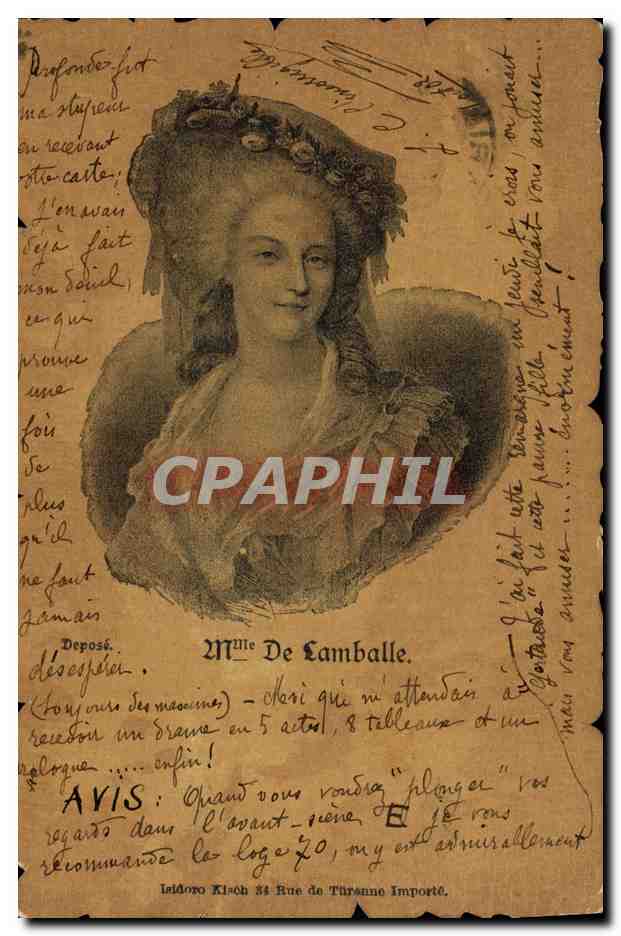 Profonde fut
ma stupeur
en recevant
votre carte;
j'en avais
déjà fait
mon deuil,
ce que
prouve
une
fois
de
plus
qu'il
ne faut
jamais
désespérer.
(toujours des maximes) – Moi qui m'attendais à
recevoir un drame en 5 actes, 8 tableaux et un
prologue ..... enfin!
AVIS: Quand vous voudrez "plonger" vos
regards dans l'avant-scène E je vous
recommande la loge 70, on y est admirablement
J'ai fait cette remarque un jeudi je crois, on jouait
"Gertrude" et cette pauvre fille semblait vous amuser...
mais vous amuser ......... énormément!
CPAPHIL
Deposé.
Mme De Lamballe.
Isidoro Kisch 34 Rue de Türenne Importé.